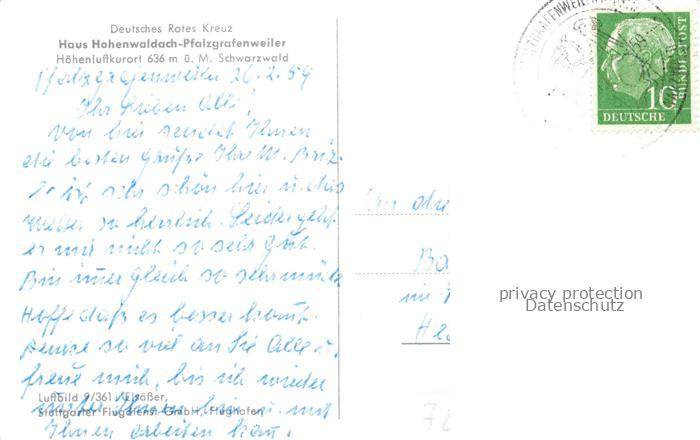 Deutsches Rotes Kreuz
Haus Hohenwaldach-Pfalzgrafenweiler
Höhenluftkurort 636 m ü. M. Schwarzwald
Pfalzgrafenweiler 26.2.59
Ihr lieben Alle!
Von hier sendet Ihnen
die besten Grüße Ihre M.
Es ist sehr schön hier u. das
Wetter so herrlich. Leider geht
es mir nicht so sehr gut.
Bin immer gleich so sehr müde
Hoffe daß es besser kommt.
Denke so viel an Sie Alle u.
freue mich, bis ich wieder
unter Ihnen bin u. mit
Ihnen arbeiten kan.
Luftbild 9/361 Elsäßer,
Stuttgarter Flugdienst GmbH, Flughafen
An die
Ba
im
He
72
10
DEUTSCHE
BUNDESPOST
privacy protection
Datenschutz